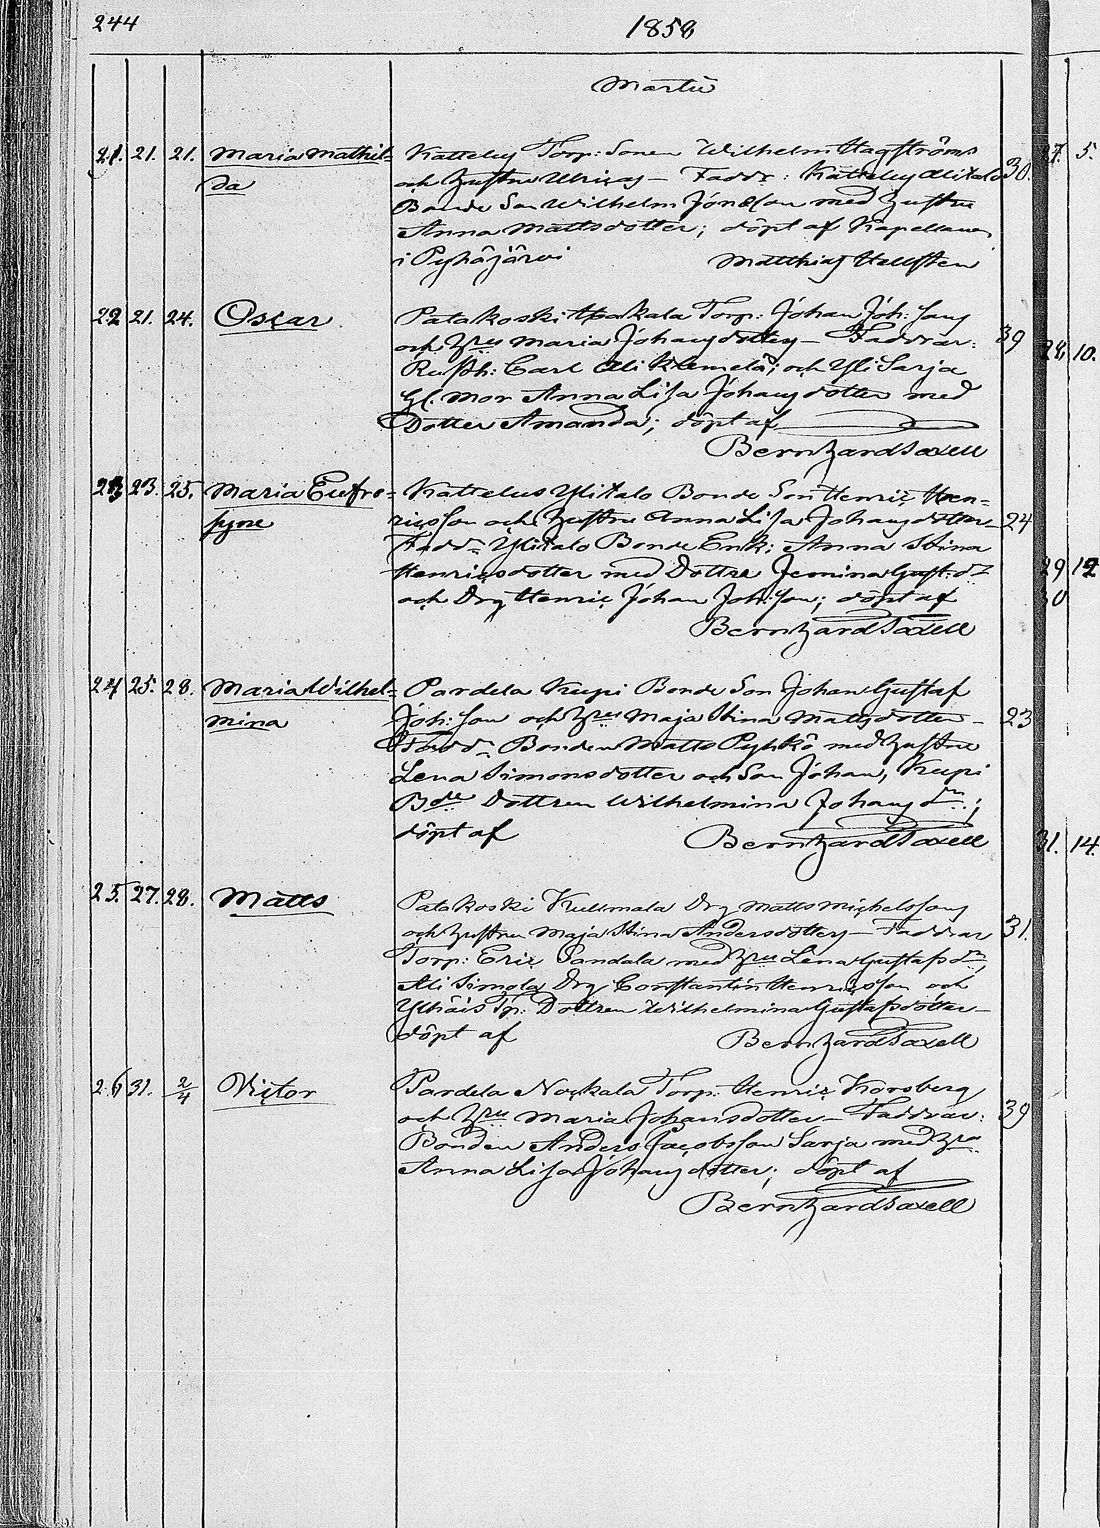 244
1858
Martii
21. 21. 21. Maria Mathil- Kattelus Torp: Sonen Wilhelm Hagströms
da och Hustru Ulricas — Faddr: Kattelus Alitalo 30.
Bonde Son Wilhelm Jónsson med Hustru
Anna Mattsdotter; döpt af Kapellanen
i Pyhäjärvi Matthias Hallsten
22 21. 24. Oscar Patakoski Torp: Johan Joh: Sons
och Hru Maria Johansdotters — Faddrar: 39
Rusth: Carl Ali ; och Yli Sarja
Gl. Mor Anna Lisa Johansdotter med
Dotter Amanda; döpt af
Bernhard Saxell
23 23. 25. Maria Eufro- Kattelus Ylitalo Bonde Son Henric Hen-
syne ricsson och Hustru Anna Lisa Johansdotter — 24
Fadd: Ylitalo Bonde Enk: Anna Stina
Henricsdotter med Dottre Jemina Gust: dr
och Drg Henric Johan Joh: Son; döpt af
Bernhard Saxell
24 25. 28. Maria Wilhel- Pardela Kupi Bonde Son Johan Gustaf
mina Joh: Son och Hru Maja Stina Matsdotter — 23
Fadd: Bonden Matts Pyhkö med Hustru
Lena Simonsdotter och Son Johan, Kupi
Bde Dottren Wilhelmina Johans dr.;
döpt af Bernhard Saxell
25. 27. 28. Matts Patakoski Kullmala Drg Matts Michelsons
och Hustru Maja Stina Andersdotters — Faddrar 31.
Torp: Eric Sandala med Hru Lena Gustafs dr,
Ali Simola Drg Constantin Henricsson och
Tp: Dottren Wilhelmina Gustafsdotter —
döpt af Bernhard Saxell
26 31. 2/4 Victor Pardela Nockala Torp: Henric Korsberg
och Hru Maria Johansdotter — Faddrar: 39
Bonden Anders Jacobsson Sarja med Hru
Anna Lisa Johansdotter; döpt af
Bernhard Saxell
27. 5.
28. 10.
29 12
30
31. 14.